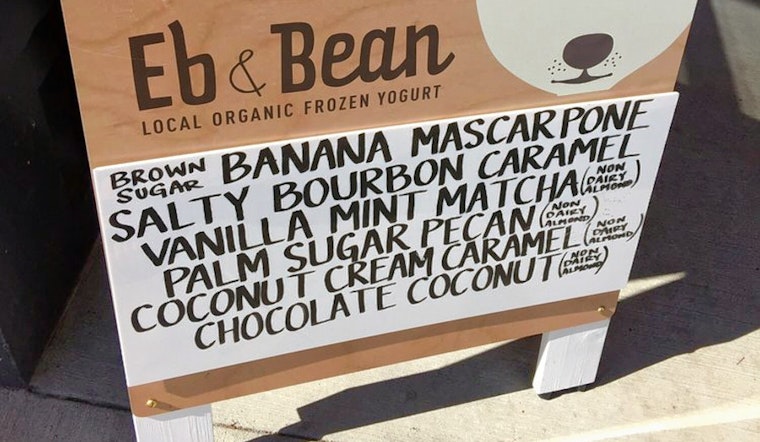 Eb & Bean
LOCAL ORGANIC FROZEN YOGURT
BROWN SUGAR BANANA MASCARPONE
SALTY BOURBON CARAMEL
VANILLA MINT MATCHA (NON DAIRY ALMOND)
PALM SUGAR PECAN (NON DAIRY ALMOND)
COCONUT CREAM CARAMEL (NON DAIRY ALMOND)
CHOCOLATE COCONUT (NON DAIRY ALMOND)